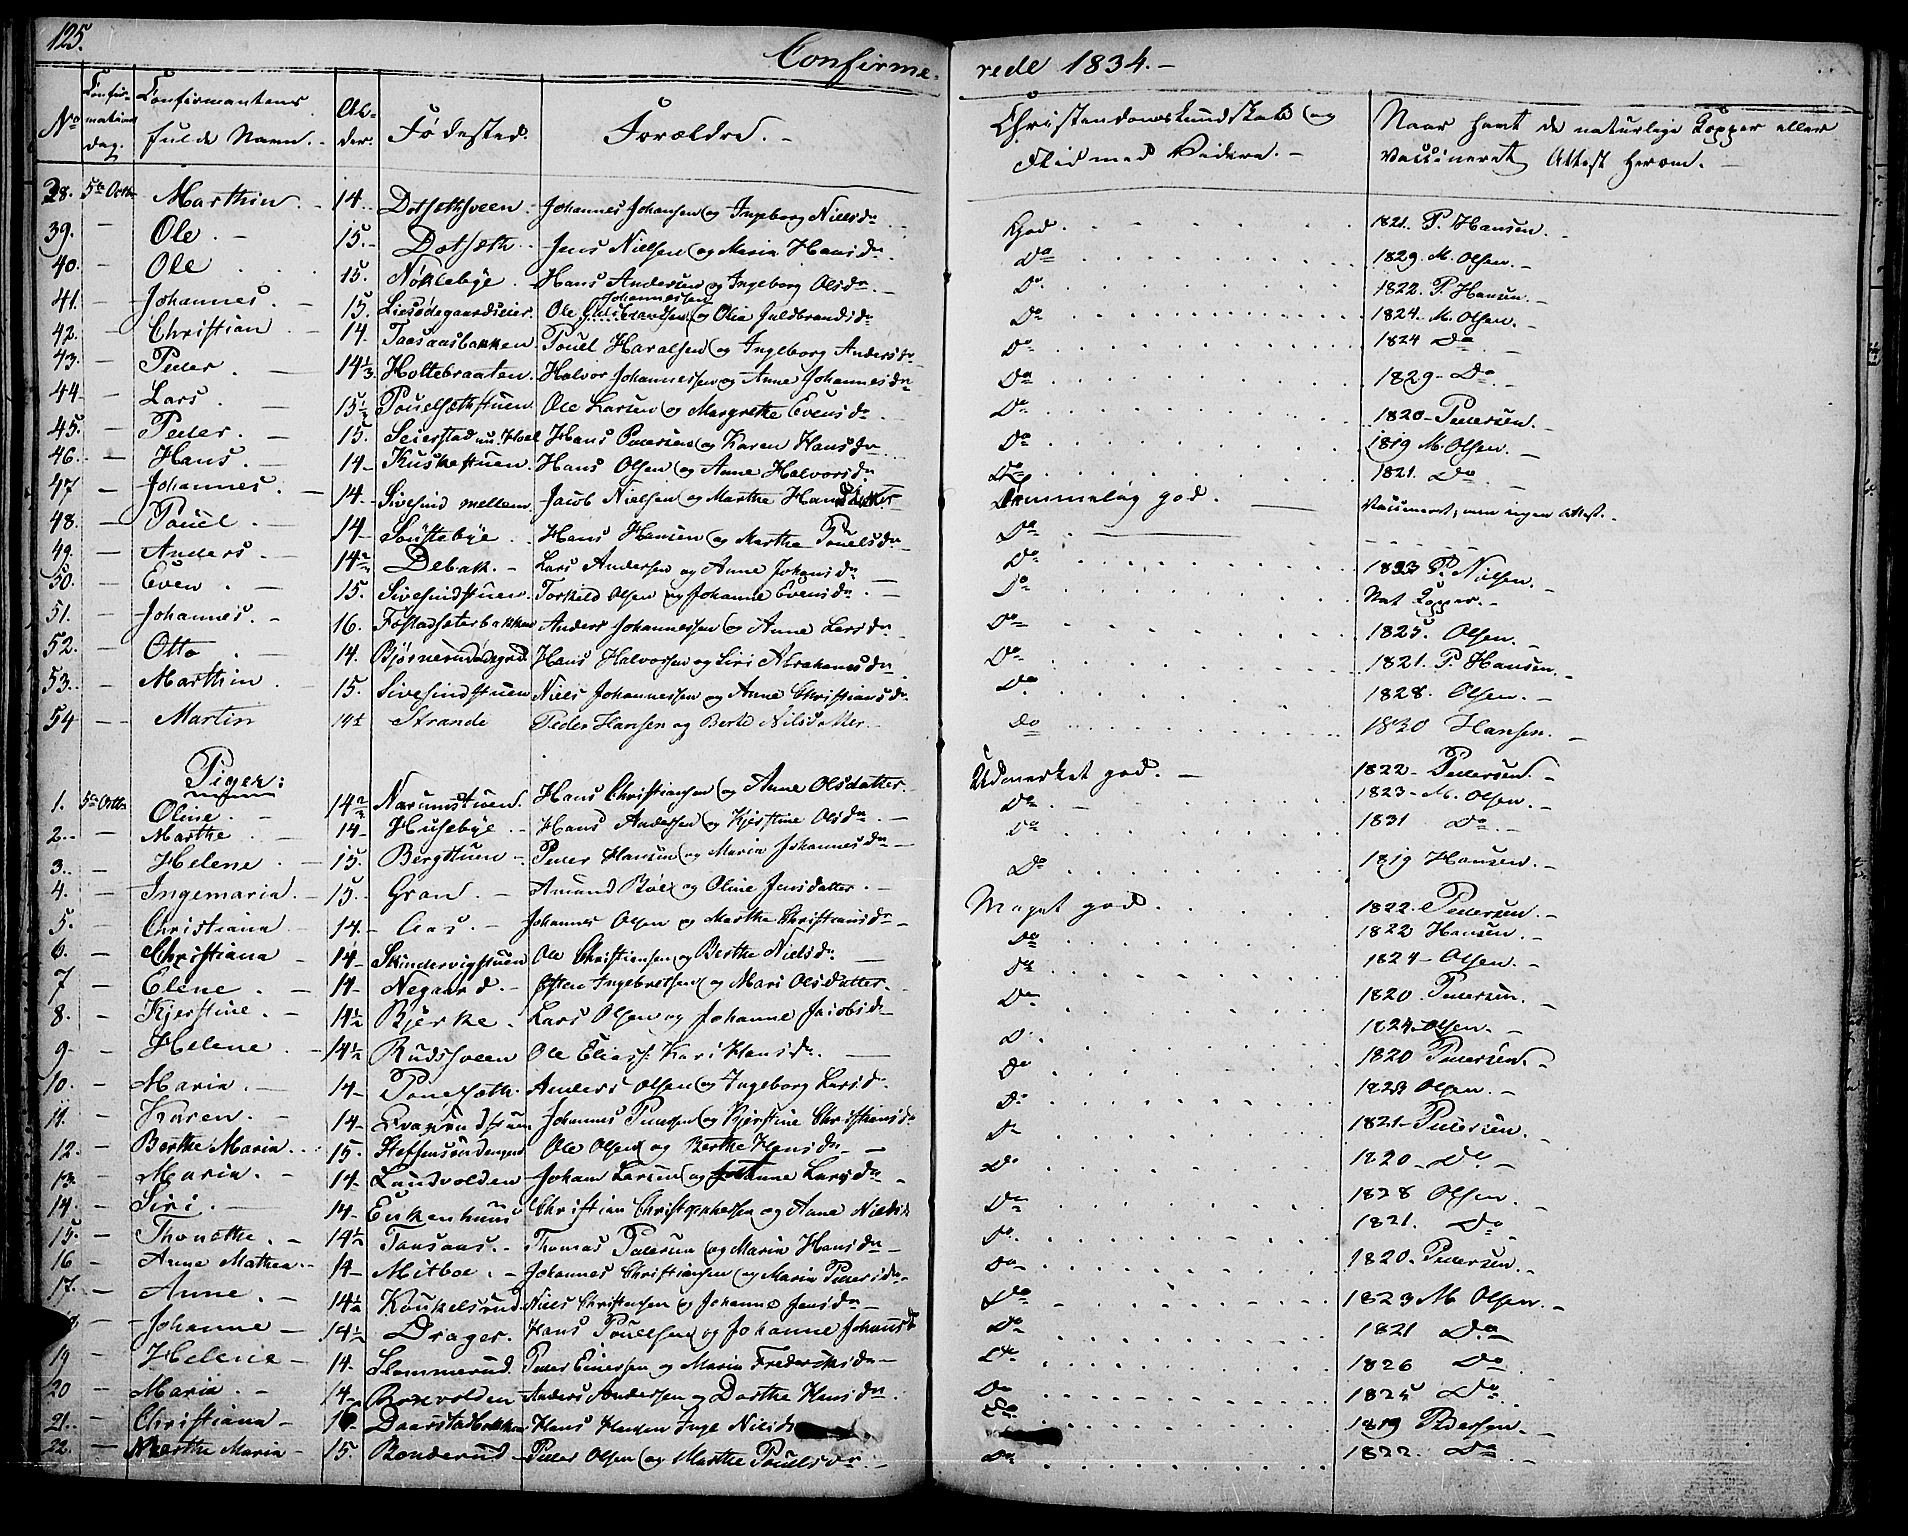 125.
Confirme- rede 1834.-
No Confirmations dag. Confirmantens fulde Navn. Alder. Fødested. Forældre. Christendomskundskab og Flid med Videre. Naar havt de naturlige Kopper eller Vaccineret, Attest herom.
38. 5te Octbr Marthin 14. Dotsethsveen Johannes Johansen og Ingeborg Nielsdr God. 1821. P. Hansen.
39. Ole 15. Dotseth Jens Nielsen og Maria Hansdr Do 1829. M. Olsen.
40. Ole 15. Nøklebye Hans Andersen og Ingeborg Olsdr Do 1822. P. Hansen.
41. Johannes 15. Ole Johannessen og Olia Guldbrandsdr Do 1824. M. Olsen.
42. Christian 14. Taasaasbakken Pouel Haralsen og Ingeborg Andersdr Do 1824 Do
43. Peder 14 1/3 Holtebraaten Halvor Johannessen og Anne Johannesdr Do 1829 Do
44. Lars 15 1/2 Pouelsethstuen Ole Larsen og Margrethe Evensdr Do 1820 Pedersen.
45. Peder 15. Seierstad Hans Pedersen og Karen Hansdr Do 1819 M. Olsen.
46. Hans 14 Kuskestuen Hans Olsen og Anne Halvorsdr Do 1821. Do
47 Johannes 14 Sivesind mellem Jacob Nielsen og Marthe Hansdatter Temmelig god. Vaccineret, men ingen Attest.
48. Pouel 14 Søustebye Hans Hansen og Marthe Pouelsdr Do
49. Anders 14 2/3 Debak Lars Andersen og Anne Johansdr Do 1833 P. Nilsen.
50. Even 15. Sivesindstuen Torkild Olsen og Johanne Evensdr Do Nat Kopper.
51. Johannes 16. Anders Johannessen og Anne Larsdr Do 1825. Olsen.
52. Otto 14. Hans Halvorsen og Siri Abrahamsdr Do 1821. P. Hansen.
53. Marthin 15. Sivesindstuen Niels Johannessen og Anne Christiansdr Do 1828. Olsen.
54 Martin 14 1/2 Strande Peder Hansen og Berte Nilsdatter Do 1830 Hansen.
Piger:
1. 5te Octbr Oline 14 2/3 Narumstuen Hans Christiansen og Anne Olsdatter Udmerket god. 1822 Pedersen.
2. Marthe 14 Husebye Hans Andersen og Kjerstine Olsdr Do 1823 M. Olsen.
3. Helene 15. Bergstuen Peder Hansen og Maria Johannesdr Do 1831 Do
4. Ingemaria 15. Gran Amund Bøe og Oline Jensdatter Do 1819 Hansen.
5. Christiana 14. Aas Johannes Olsen og Marthe Christiansdr Meget god. 1822. Pedersen.
6. Christiana 14 Skindervigstuen Ole Christiansen og Berthe Nielsdr Do 1822 Hansen.
7 Elene 14 Negaard Østen Ingebretsen og Mari Olsdatter Do 1824 Olsen.
8. Kjerstine 14 1/2 Bjerke Lars Olsen og Johanne Jacobsdr Do 1820 Pedersen.
9. Helene 14 1/2 Rudssveen Ole Elias. Kari Hansdr Do 1824 Olsen.
10. Maria 14 Pouelseth Anders Olsen og Ingeborg Larsdr Do 1820 Pedersen.
11. Karen 14 Johannes Pedersen og Kjerstine Christiansdr Do 1823 Olsen.
12. Berthe Maria 15. Ole Olsen og Berthe Hansdr Do 1821 Pedersen.
13. Maria 14 Lundvolden Johan Larsen og Anne Larsdr Do 1820 Do
14. Siri 14 Enkenhuus Christian Christophersen og Anne Nielsdr Do 1828 Olsen.
15. Thonethe 14 1/2 Taasaas Thomas Pedersen og Maria Hansdr Do 1821. Do
16 Anne Mathea 14 Mitboe Johannes Christiansen og Maria Pedersdr Do 1820. Pedersen.
17. Anne 14 1/2 Koukelsrud Niels Christensen og Johanne Jensdr Do 1823 M. Olsen.
Johanne 14 1/2 Drager Hans Pouelsen og Johanne Johansdr Do 1821 Do
19 Helene 14 Slommerud Peder Einersen og Maria Frederiksdr Do 1826 Do
20 Maria 14 Boxvolden Anders Andersen og Dorthe Hansdr Do 1825 Do
21. Christiana 16 Daarstadbakken Hans Hansen Inge Nielsd Do 1819 Pedersen.
22. Marthe Maria 15. Bonderud Peder Olsen og Marthe Pouelsdr Do 1822. Do